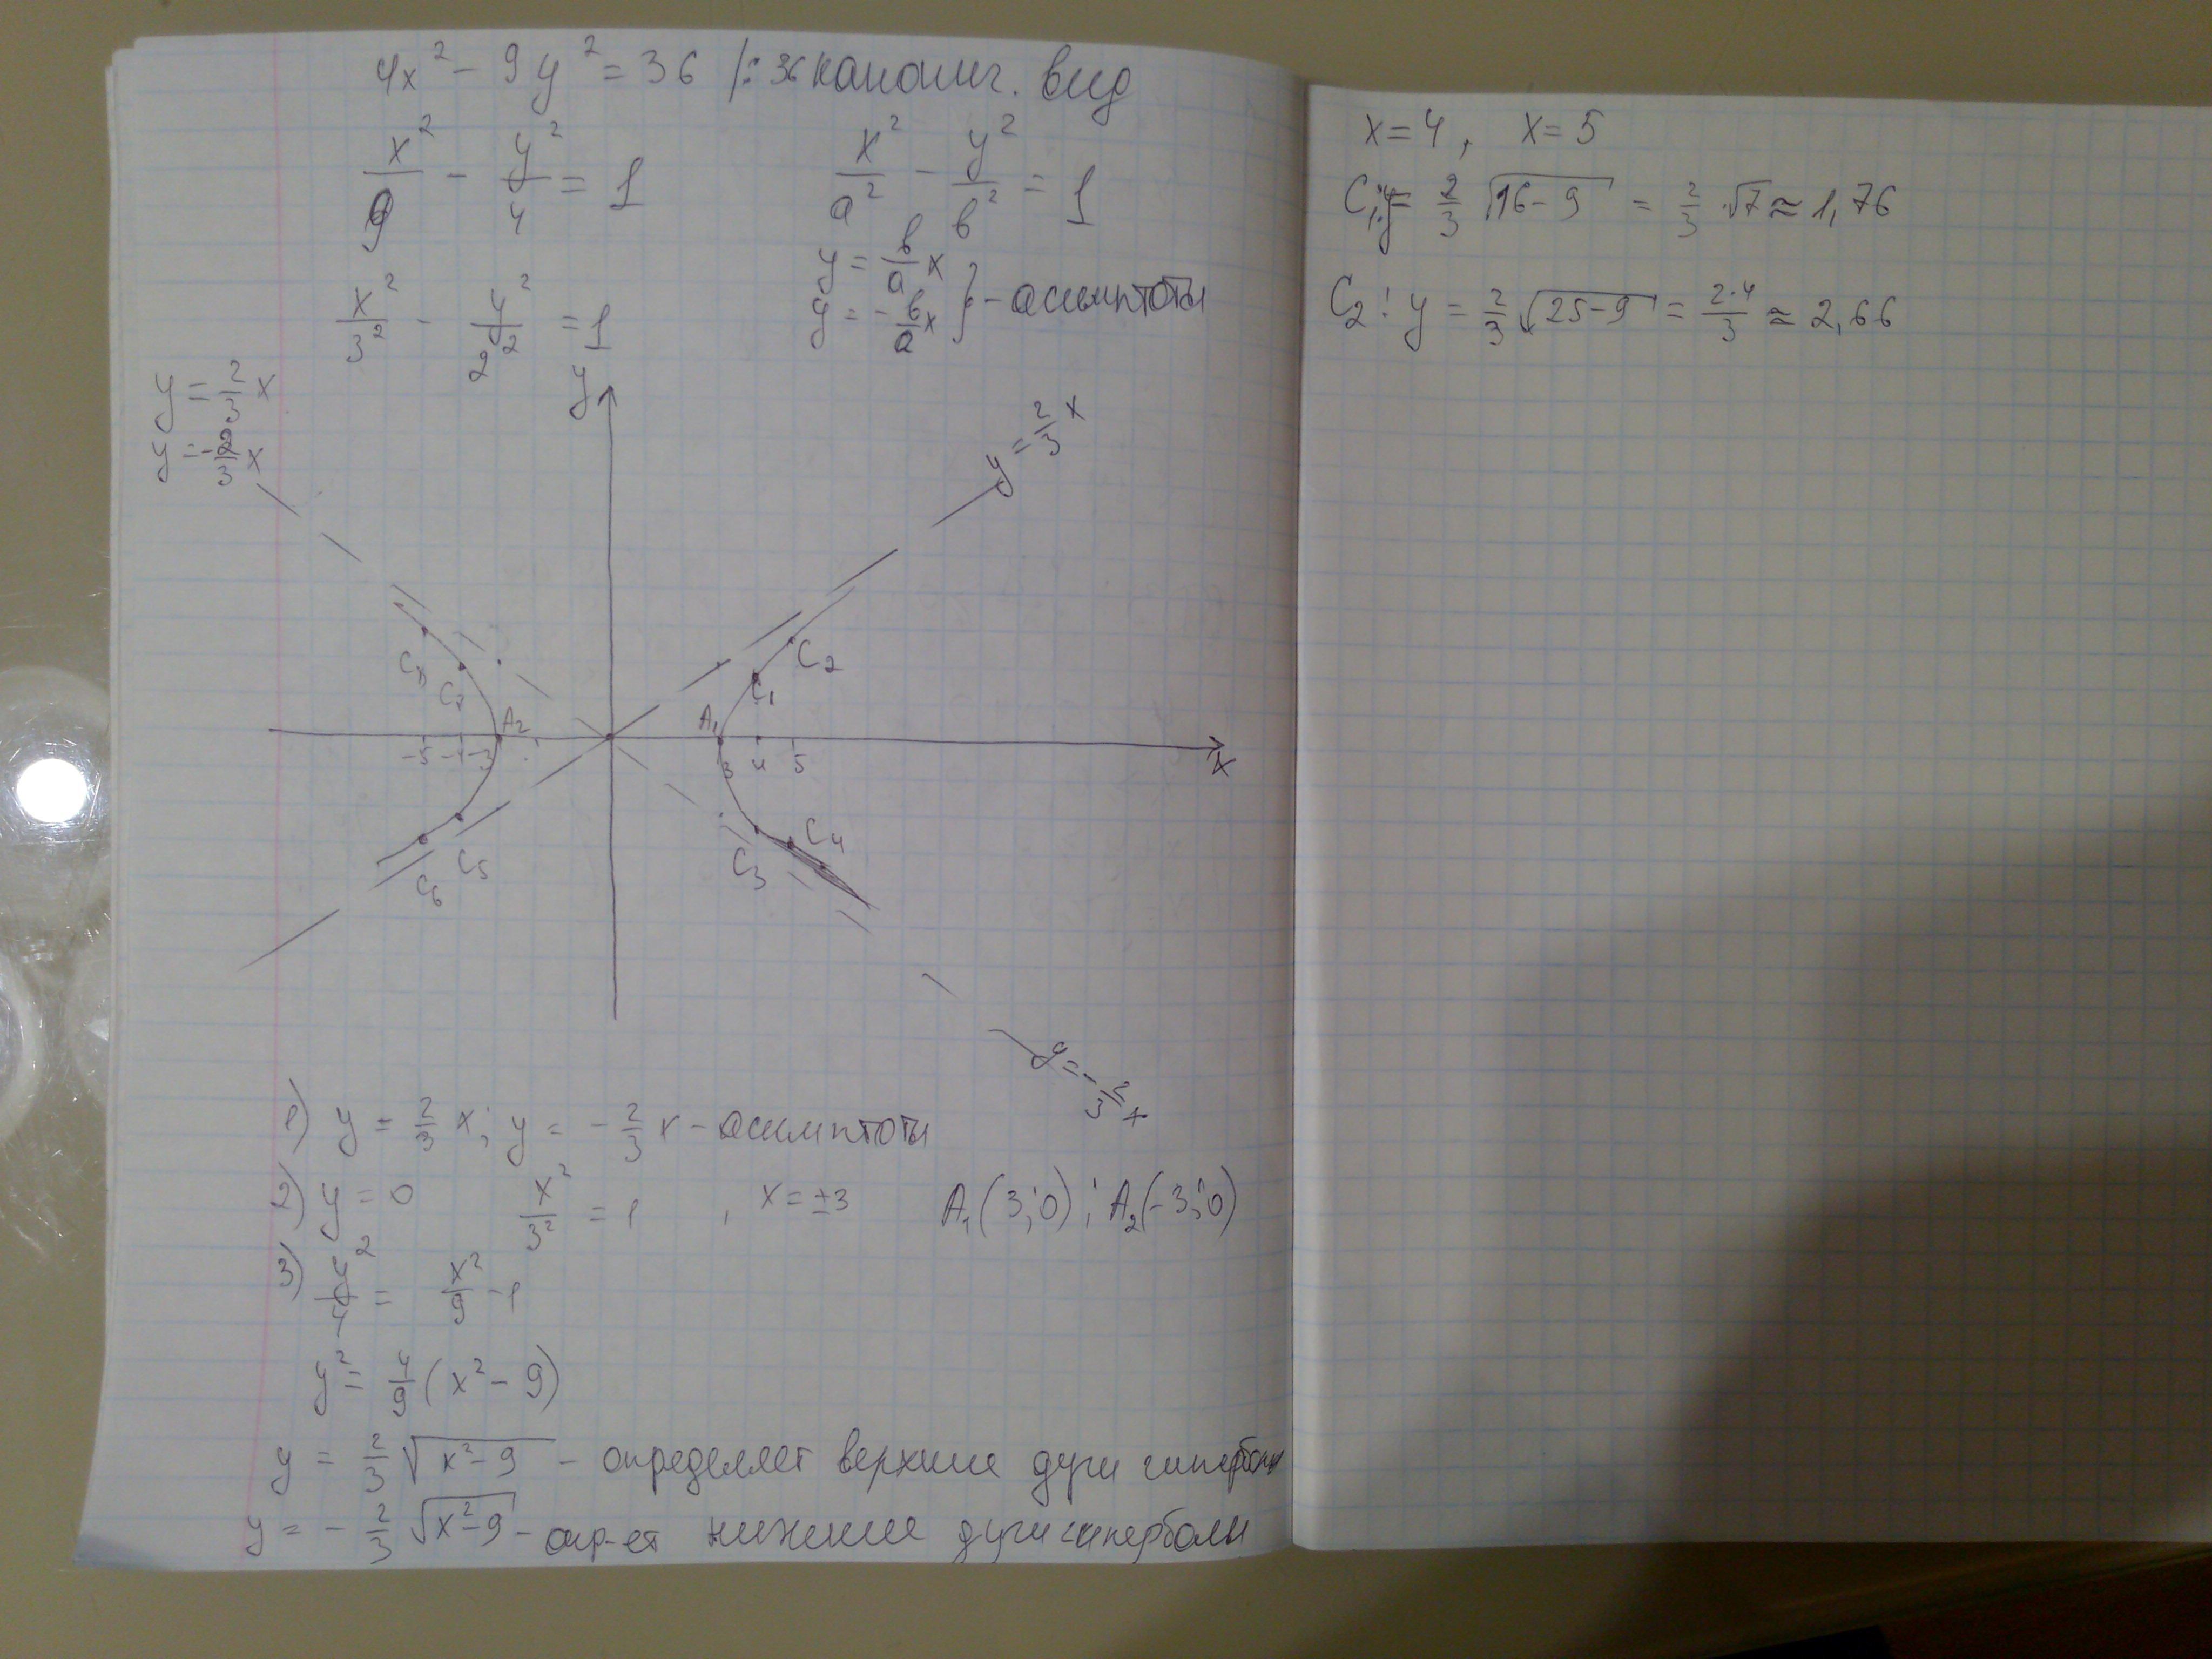 4x² - 9y² = 36 |: 36 канонич. вид
x²/9 - y²/4 = 1
x²/a² - y²/в² = 1
y = в/a x
y = -в/a x } - асимптоты
x²/3² - y²/2² = 1
y = 2/3 x
y = -2/3 x
y
y = 2/3 x
C₂
C₁
C₇
A₂
A₁
-5 -4 -3
3 4 5
x
C₄
C₃
C₅
C₆
y = -2/3 x
1) y = 2/3 x; y = -2/3 x - асимптоты
2) y = 0 x²/3² = 1 , x = ±3 A₁(3;0); A₂(-3;0)
3) y²/4 = x²/9 - 1
y² = 4/9 (x² - 9)
y = 2/3 √(x² - 9) - определяет верхние дуги гиперболы
y = - 2/3 √(x² - 9) - опр-ет нижние дуги гиперболы
x = 4, x = 5
C₁: y = 2/3 √(16 - 9) = 2/3 · √7 ≈ 1,76
C₂: y = 2/3 √(25 - 9) = 2·4/3 ≈ 2,66